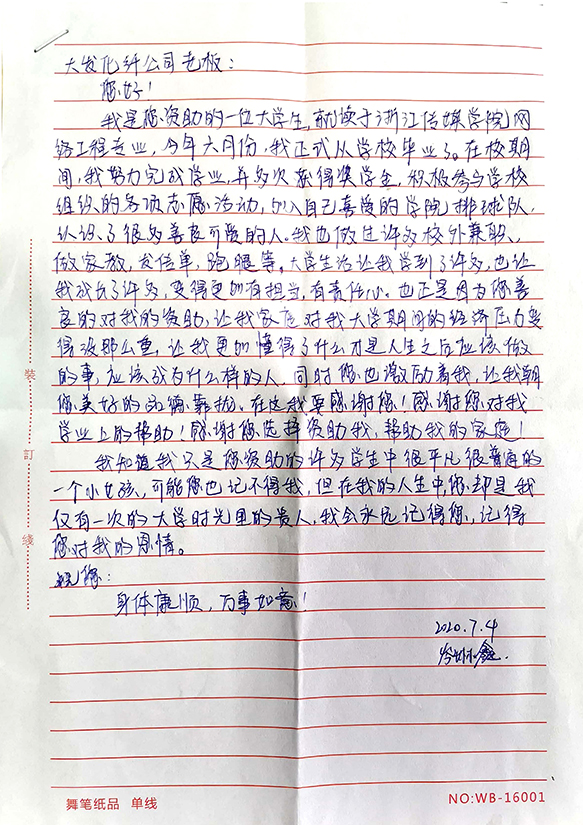 大发化纤公司老板：
您好！
我是您资助的一位大学生，就读于浙江传媒学院网
络工程专业，今年六月份，我正式从学校毕业了。在校期
间，我努力完成学业，并多次获得奖学金，积极参与学校
组织的各项志愿活动，加入自己喜爱的学院排球队，
认识了很多善良可爱的人。我也做过许多校外兼职、
做家教，发传单，跑腿等。大学生活让我学到了许多，也让
我成长了许多，变得更加有担当，有责任心。也正是因为您善
良的对我的资助，让我家庭对我大学期间的经济压力变
得没那么重，让我更加懂得了什么才是人生之后应该做
的事，应该成为什么样的人，同时您也激励着我，让我朝
您美好的品德靠拢。在这我要感谢您！感谢您对我
学业上的帮助！感谢您选择资助我，帮助我的家庭！
我知道我只是您资助的许多学生中很平凡很普通的
一个小女孩，可能您也记不得我，但在我的人生中，您却是我
仅有一次的大学时光里的贵人，我会永远记得您，记得
您对我的恩情。
祝您：
身体康顺，万事如意！
2020.7.4
装
订
线
舞笔纸品 单线
NO:WB-16001